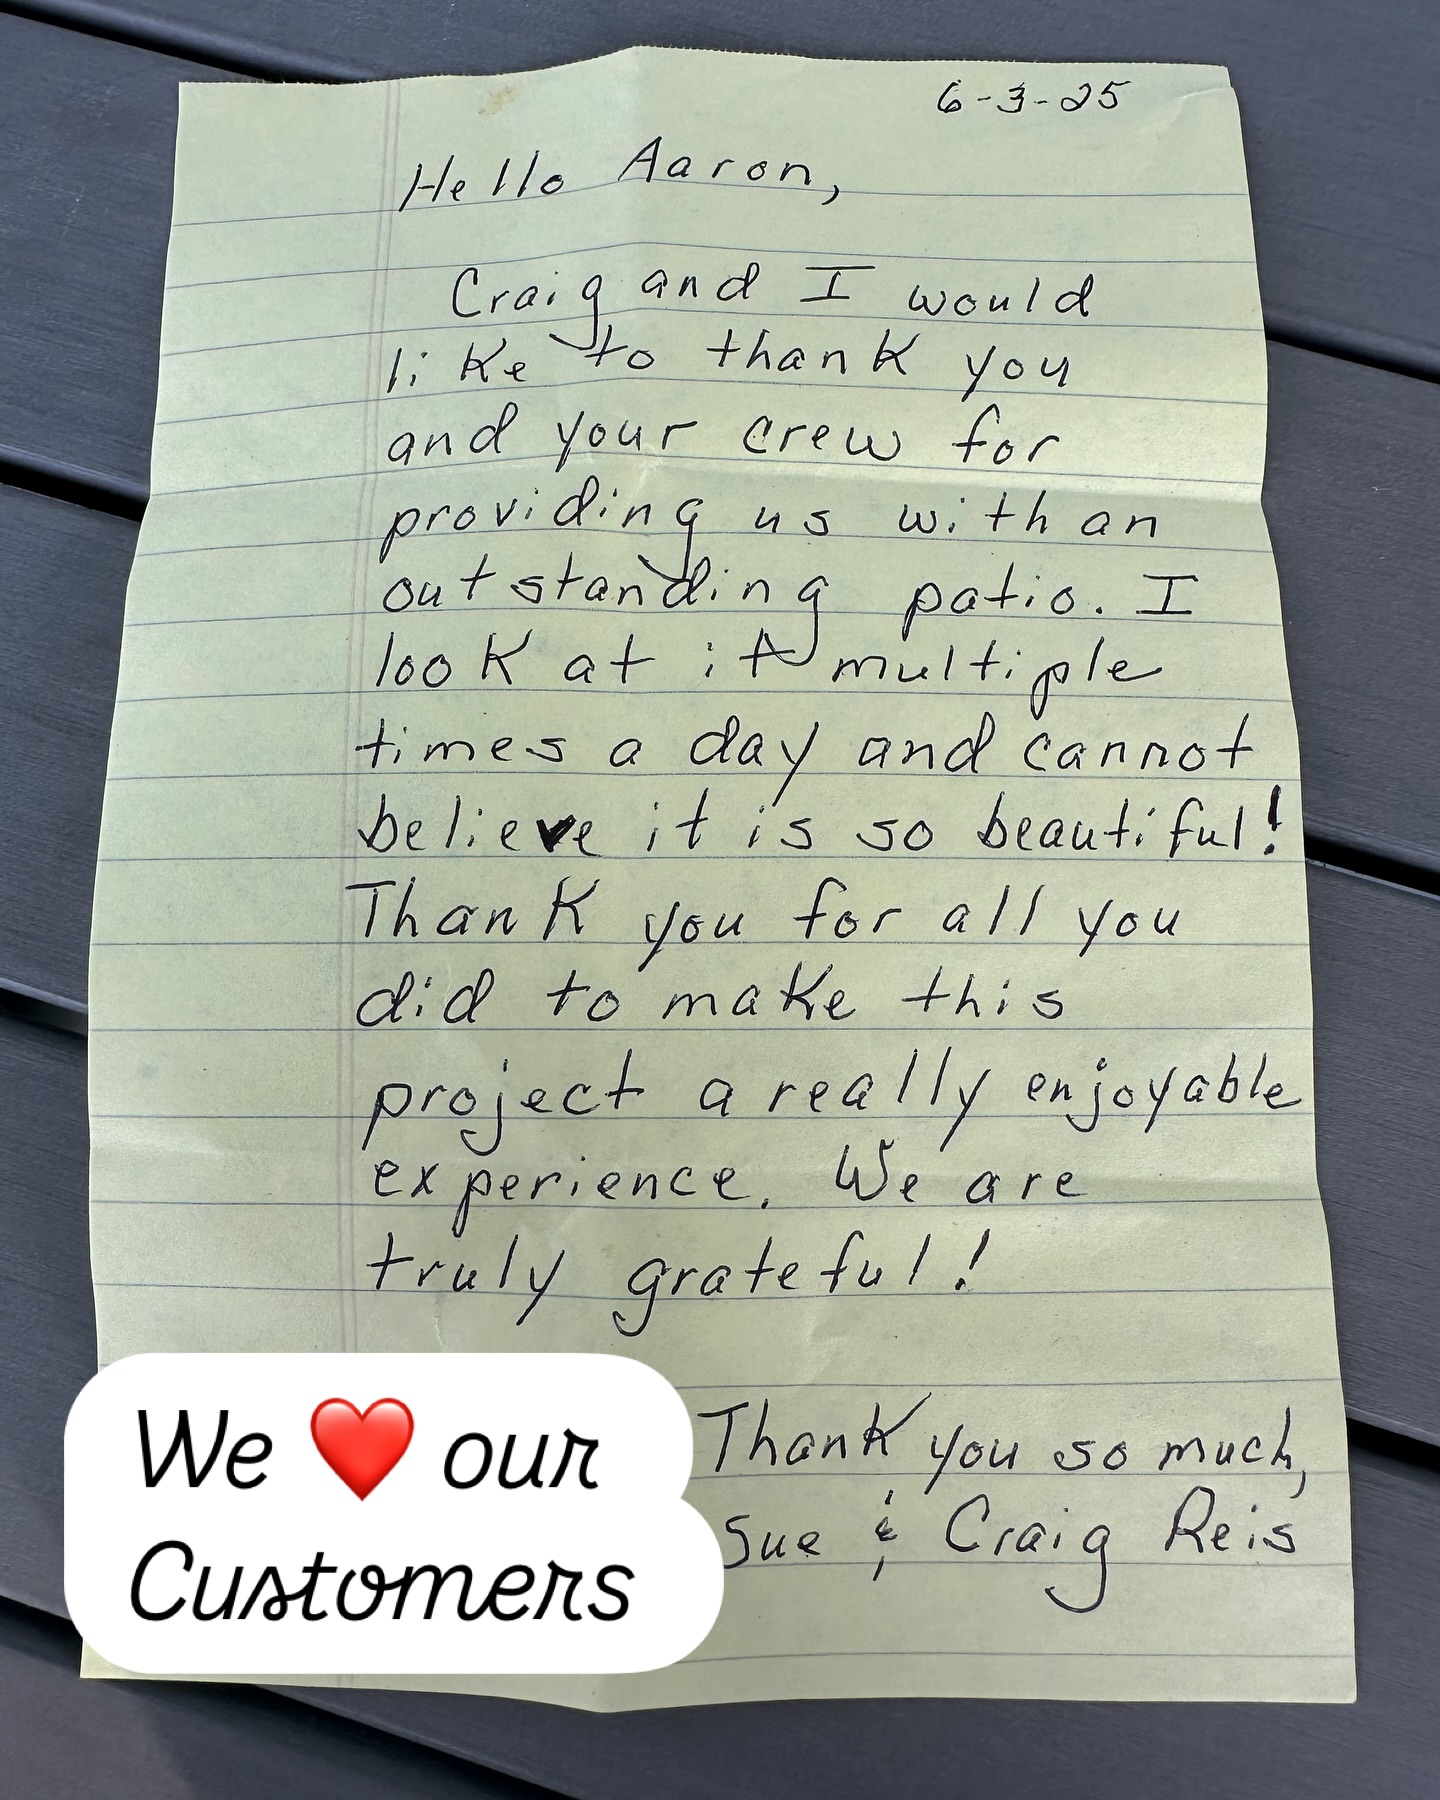 6-3-25
Hello Aaron,
Craig and I would
like to thank you
and your crew for
providing us with an
outstanding patio. I
look at it multiple
times a day and cannot
believe it is so beautiful!
Thank you for all you
did to make this
project a really enjoyable
experience. We are
truly grateful!
Thank you so much,
Sue & Craig Reis
We ❤️ our
Customers